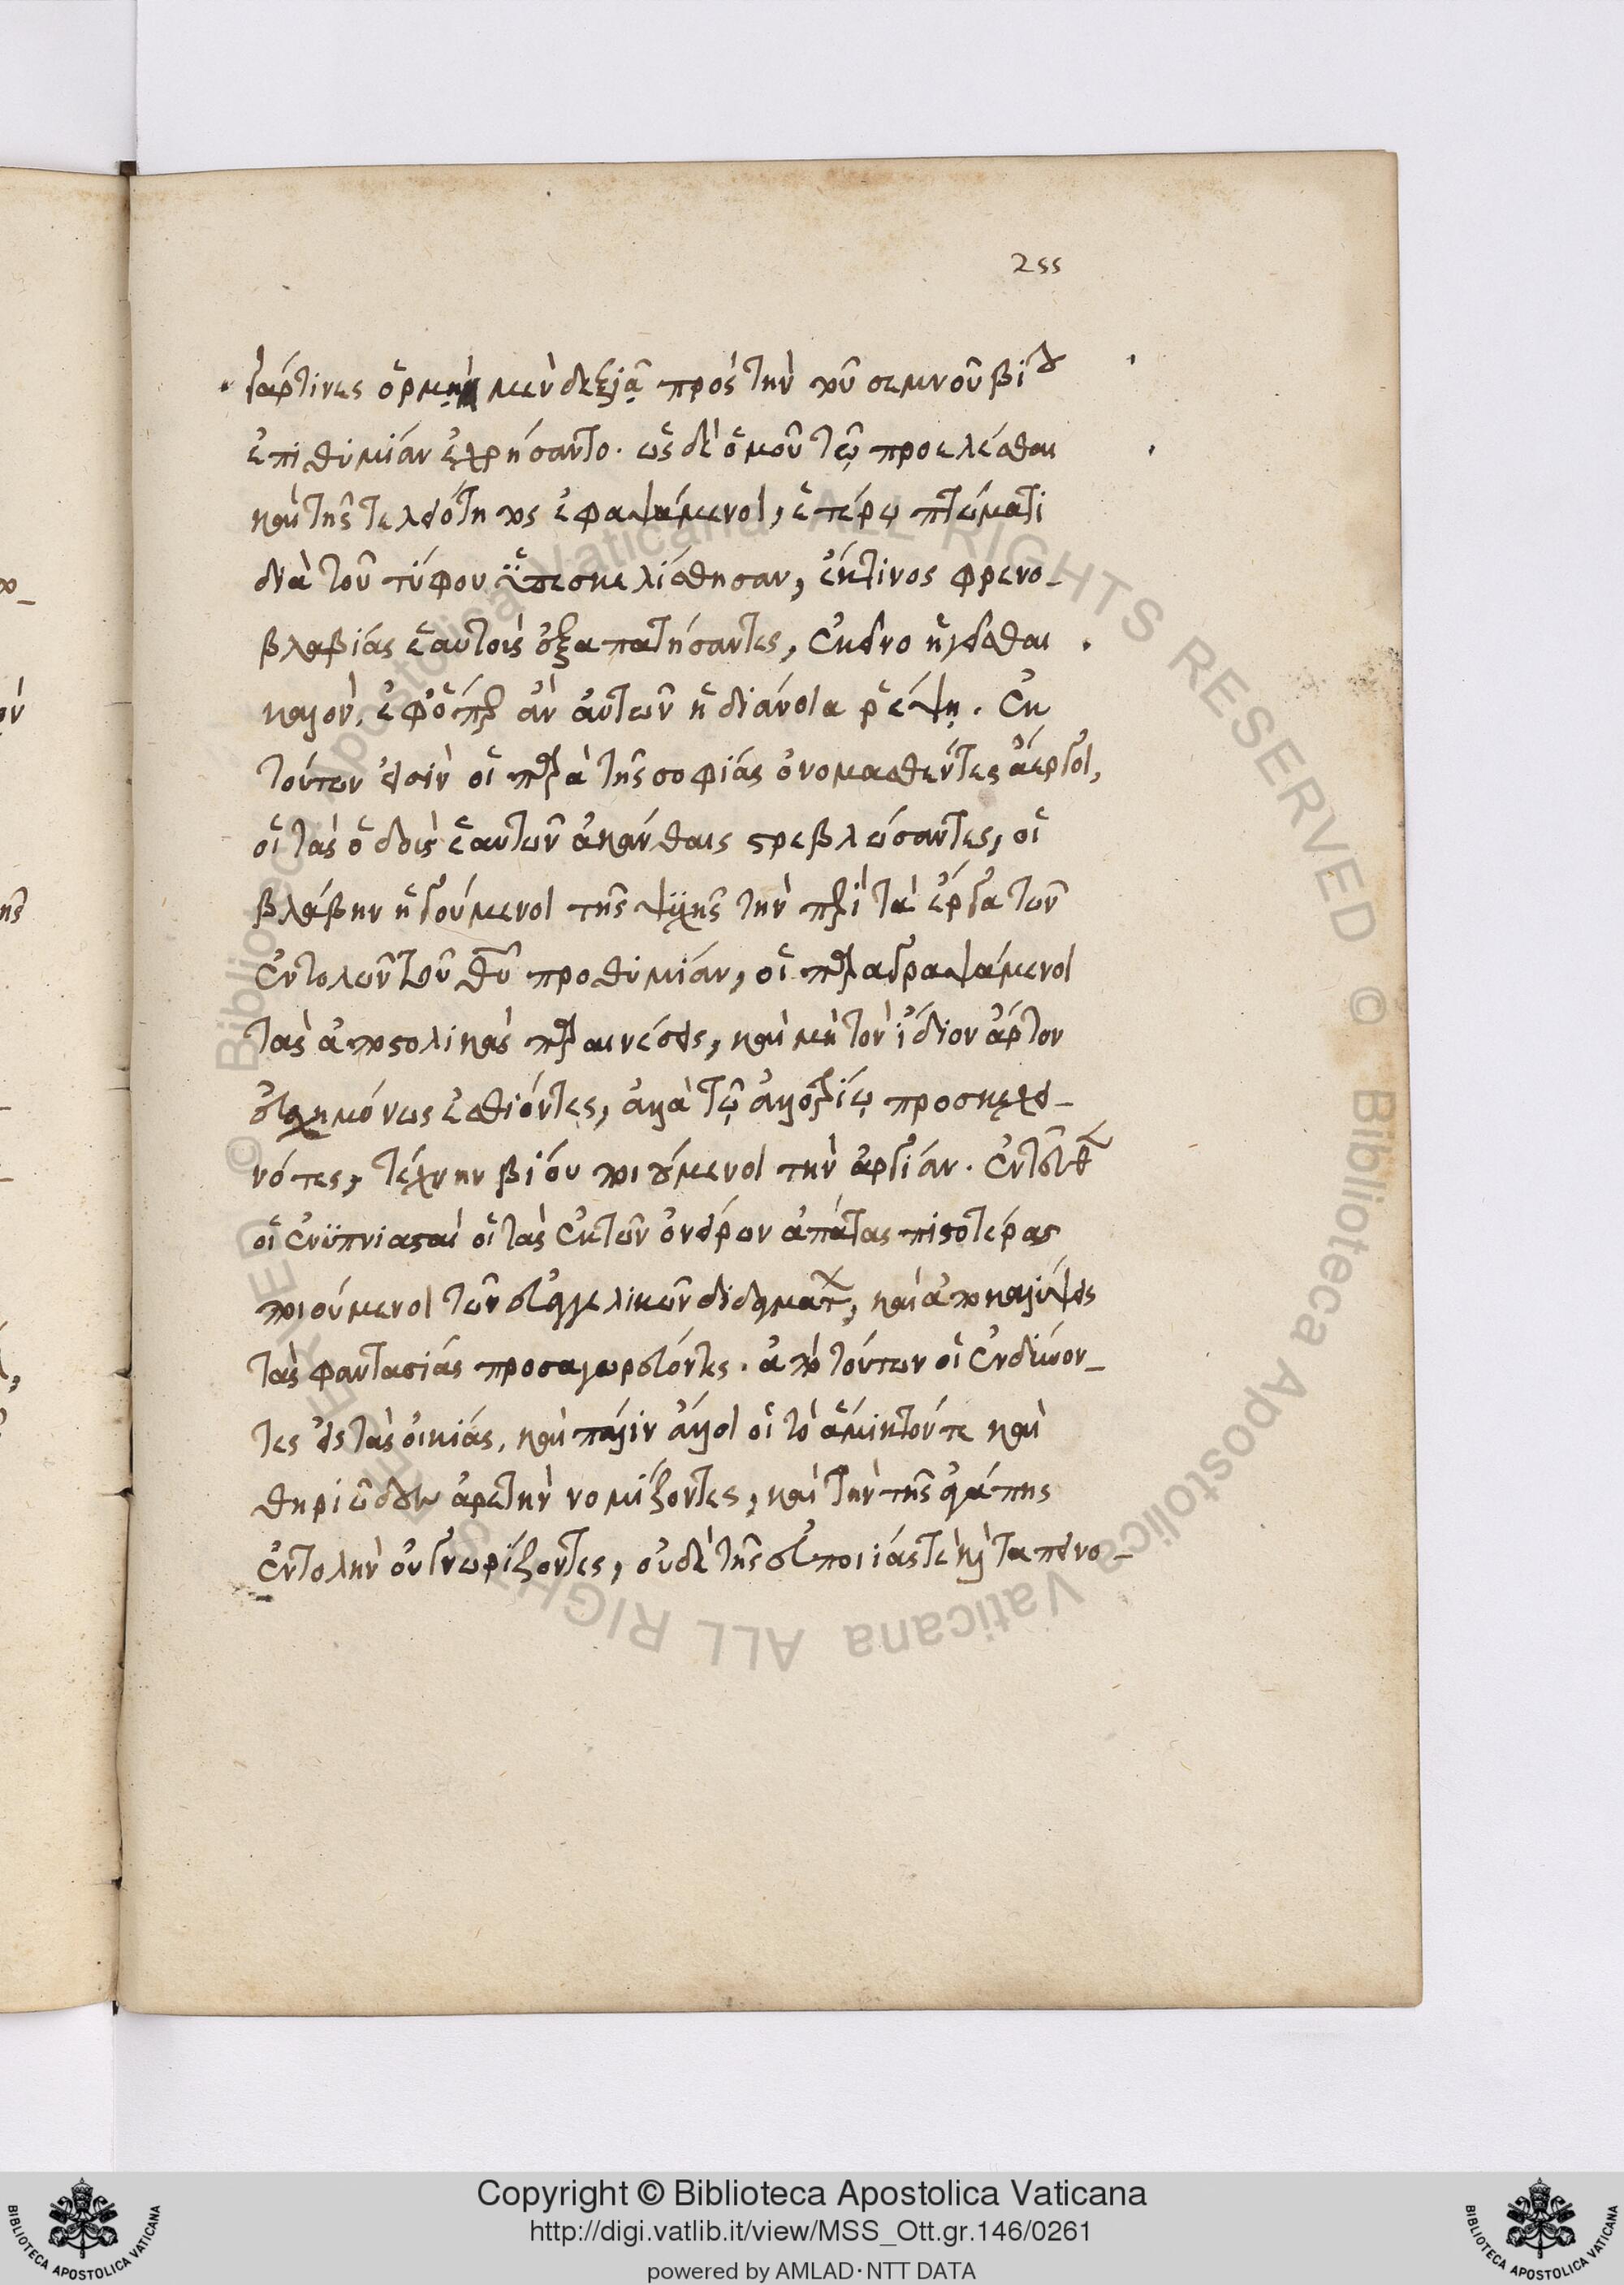 255
γάρ τινες ὁρμῇ μὲν δεξιᾷ πρὸς τὴν τοῦ σεμνοῦ βίου
ἐπιθυμίαν ἐχρήσαντο. ὡς δὲ ὁμοῦ τῷ προελέσθαι
καὶ τῆς τελειότητος ἐφαψάμενοι, ἑτέρῳ πτώματι
διὰ τοῦ τύφου ὑπεσκελίσθησαν, ἔκ τινος φρενο-
βλαβίας ἑαυτοὺς ἐξαπατήσαντες, ἐκεῖνο ἡγεῖσθαι
καλὸν, ἐφ' ὅπερ ἂν αὐτῶν ἡ διάνοια ῥέψῃ. Ἐκ
τούτων εἰσὶν οἱ παρὰ τῆς σοφίας ὀνομασθέντες ἀεργοὶ,
οἱ τὰς ὁδοὺς ἑαυτῶν ἀκάνθαις στρεβλώσαντες, οἱ
βλάβην ἡγούμενοι τῆς ψυχῆς τὴν περὶ τὰ ἔργα τῶν
ἐντολῶν τοῦ θυ προθυμίαν, οἱ παραγραψάμενοι
τὰς ἀποστολικὰς παραινέσεις, καὶ μὴ τὸν ἴδιον ἄρτον
εὐσχημόνως ἐσθίοντες, ἀλλὰ τῷ ἀλλοτρίῳ προσκεχη-
νότες, τέχνην βίου ποιούμενοι τὴν ἀργίαν. Ἐντεῦθεν
οἱ ἐνυπνιασταὶ οἱ τὰς ἐκ τῶν ὀνείρων ἀπάτας πιστοτέρας
ποιούμενοι τῶν εὐαγγελικῶν διδαγμάτων, καὶ ἀποκαλύψεις
τὰς φαντασίας προσαγορεύοντες. ἀπὸ τούτων οἱ ἐνδύνον-
τες εἰς τὰς οἰκίας, καὶ πάλιν ἄλλοι οἱ τὸ ἄμικτόν τε καὶ
θηριῶδες ἀρετὴν νομίζοντες, καὶ τὴν τῆς ἀγάπης
ἐντολὴν οὐ γνωρίζοντες, οὐδὲ τῆς εὐποιίας τε καὶ ταπεινο-
Copyright © Biblioteca Apostolica Vaticana
http://digi.vatlib.it/view/MSS_Ott.gr.146/0261
powered by AMLAD·NTT DATA